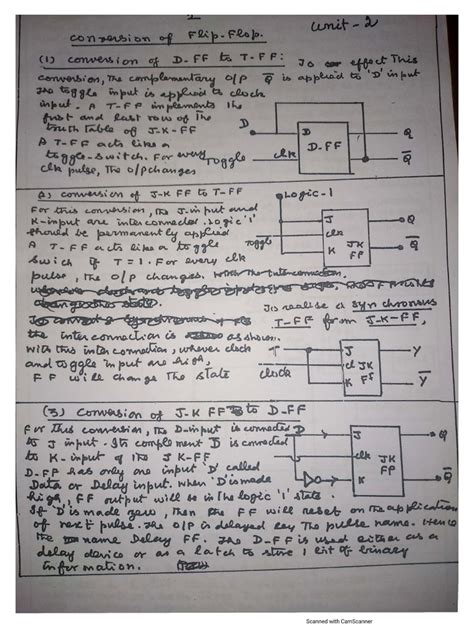 Unit - 2
conversion of Flip-Flop.
(1) conversion of D-FF to T-FF: To effect This
conversion, The complementary O/P Q̅ is applied to 'D' input
The toggle input is applied to clock
input. A T-FF implements the
first and last row of the
truth Table of J-K-FF
A T-FF acts like a
toggle-switch. For every
clk pulse, The o/p changes
D
Toggle
D
D-FF
clk
Q
Q̅
2) conversion of J-K FF to T-FF
For this conversion, The J-input and
K-input are interconnected. Logic '1'
should be permanently applied
A T-FF acts like a toggle
Swich if T = 1. For every clk
pulse, The O/P changes.
Logic-1
Toggle
J
clk
K
JK
FF
Q
Q̅
To realise a synchronous
T-FF from J-K-FF,
the interconnection is as shown.
with this interconnection, whever clock
and toggle input are high,
FF will change The state
T
clock
J
cl
K
JK
FF
Y
Y̅
(3) Conversion of J-K FF to D-FF
For this conversion, The D-input is connected
to J input. Its complement D̅ is connected
to K-input of The J-K FF
D-FF has only one input 'D' called
Data or Delay input. When 'D' is made
high, FF output will be in the logic '1' state.
If D is made zero, Then The FF will reset on The application
of next pulse. The O/P is delayed The pulse name. Hence
the name Delay FF. The D-FF is used either as a
delay device or as a latch to store 1 bit of binary
information.
D
J
clk
K
JK
FF
Q
Q̅
Scanned with CamScanner